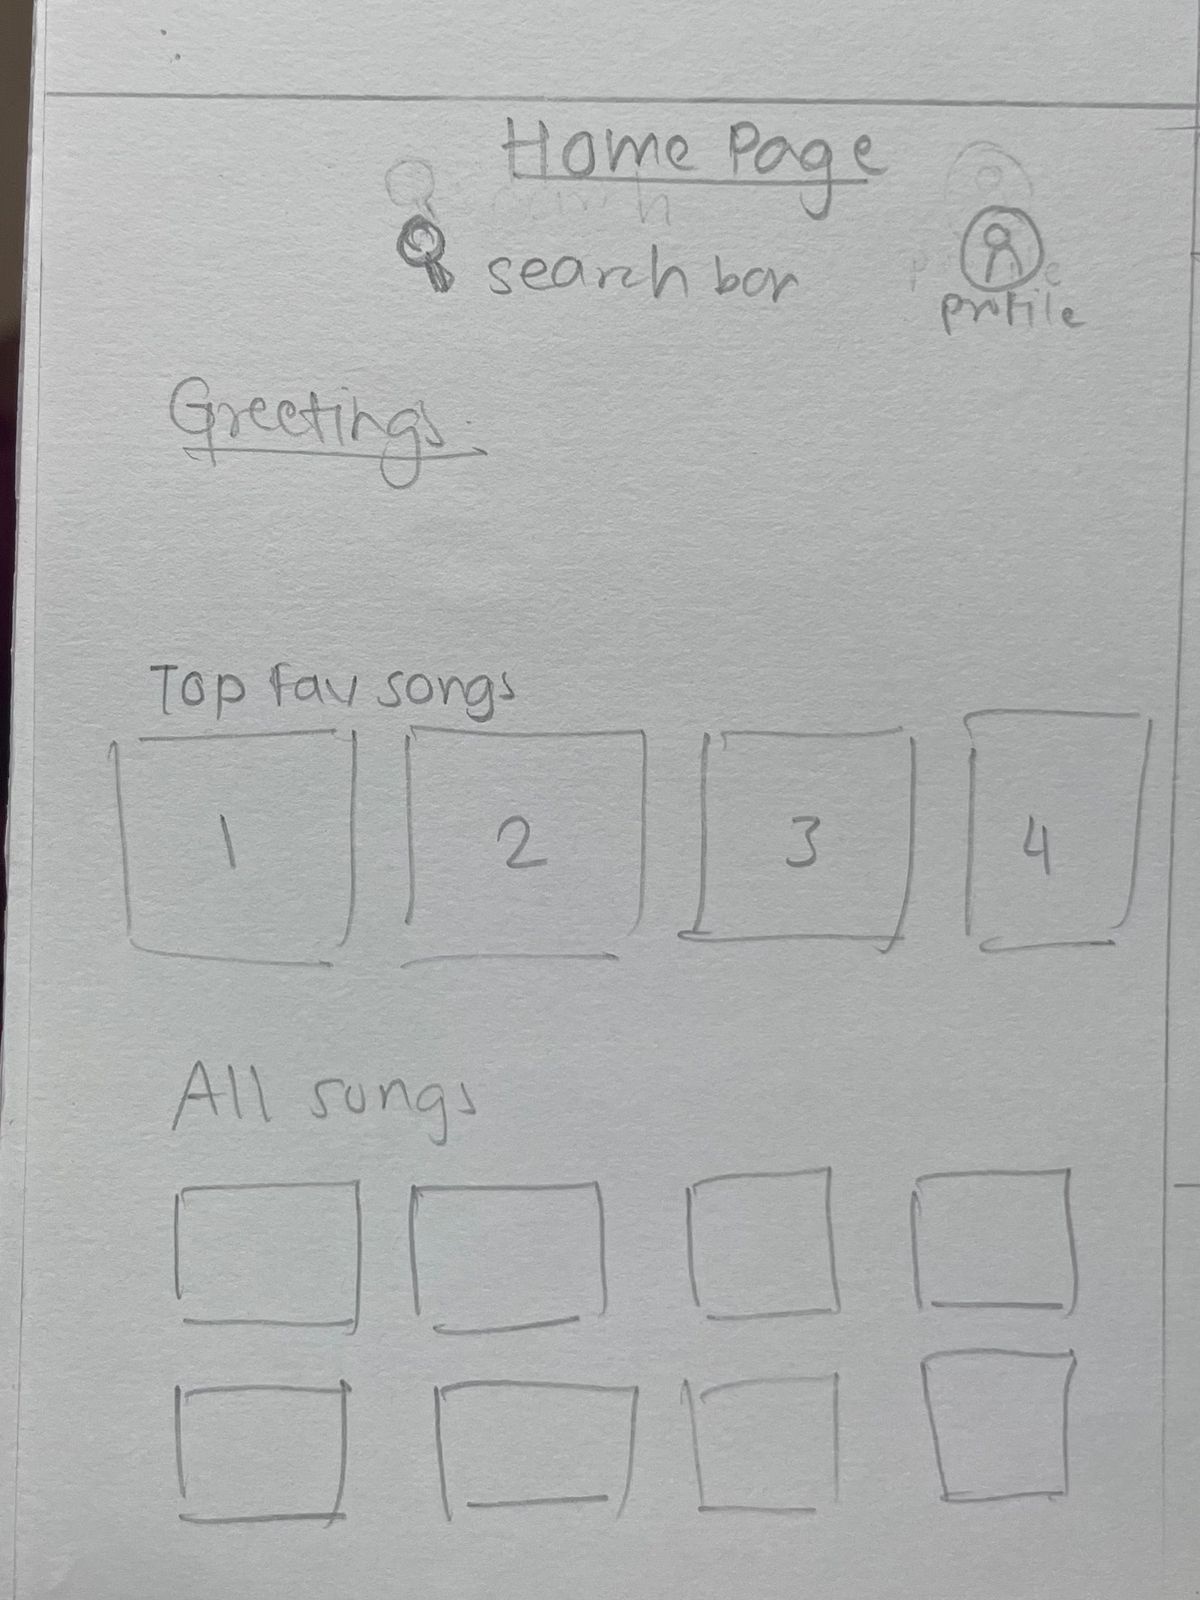 Home Page
search bar
profile
Greetings
Top fav songs
1 2 3 4
All songs